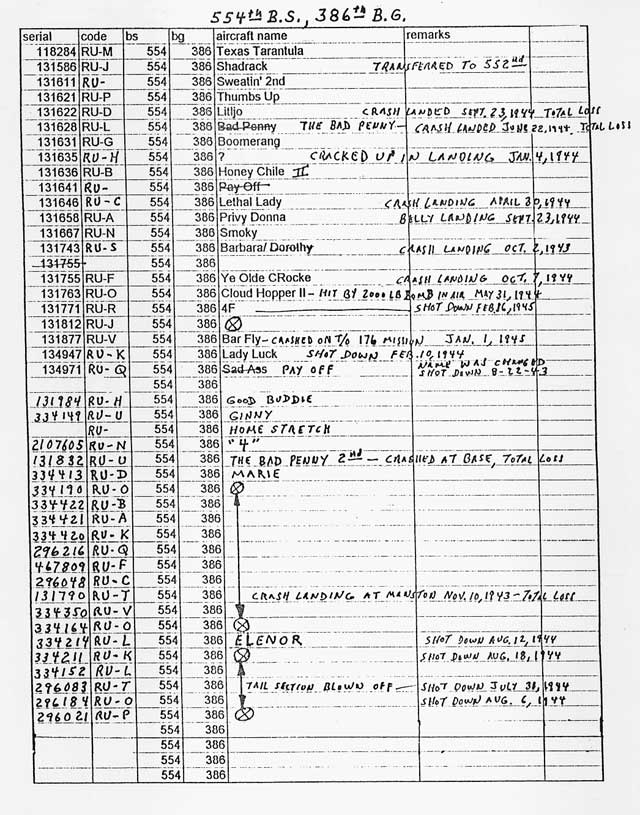 554th B.S., 386th B.G.
serial code bs bg aircraft name remarks
118284 RU-M 554 386 Texas Tarantula
131586 RU-J 554 386 Shadrack TRANSFERRED TO 552nd
131611 RU- 554 386 Sweatin' 2nd
131621 RU-P 554 386 Thumbs Up
131622 RU-D 554 386 Litljo CRASH LANDED SEPT. 23, 1944 TOTAL LOSS
131628 RU-L 554 386 Bad Penny THE BAD PENNY - CRASH LANDED JUNE 22, 1944, TOTAL LOSS
131631 RU-G 554 386 Boomerang
131635 RU-H 554 386 ? CRACKED UP IN LANDING JAN. 4, 1944
131636 RU-B 554 386 Honey Chile II
131641 RU- 554 386 Pay Off
131646 RU-C 554 386 Lethal Lady CRASH LANDING APRIL 30, 1944
131658 RU-A 554 386 Privy Donna BELLY LANDING SEPT. 23, 1944
131667 RU-N 554 386 Smoky
131743 RU-S 554 386 Barbara/ Dorothy CRASH LANDING OCT. 2, 1943
131755 554 386
131755 RU-F 554 386 Ye Olde CRocke CRASH LANDING OCT. 7, 1944
131763 RU-O 554 386 Cloud Hopper II - HIT BY 2000 LB BOMB IN AIR MAY 31, 1944
131771 RU-R 554 386 4F SHOT DOWN FEB. 16, 1945
131812 RU-J 554 386
131877 RU-V 554 386 Bar Fly - CRASHED ON T/O 176 MISSION JAN. 1, 1945
134947 RU-K 554 386 Lady Luck SHOT DOWN FEB. 10, 1944
134971 RU-Q 554 386 Sad Ass PAY OFF NAME WAS CHANGED
SHOT DOWN 8-22-43
554 386
131984 RU-H 554 386 GOOD BUDDIE
334149 RU-U 554 386 GINNY
RU- 554 386 HOME STRETCH
2107605 RU-N 554 386 "4"
131832 RU-U 554 386 THE BAD PENNY 2nd - CRASHED AT BASE, TOTAL LOSS
334413 RU-D 554 386 MARIE
334190 RU-O 554 386
334422 RU-B 554 386
334421 RU-A 554 386
334420 RU-K 554 386
296216 RU-Q 554 386
467809 RU-F 554 386
296048 RU-C 554 386
131790 RU-T 554 386 CRASH LANDING AT MANSTON NOV. 10, 1943 - TOTAL LOSS
334350 RU-V 554 386
334164 RU-O 554 386
334214 RU-L 554 386 ELENOR SHOT DOWN AUG. 12, 1944
334211 RU-K 554 386 SHOT DOWN AUG. 18, 1944
334152 RU-L 554 386
296083 RU-T 554 386 TAIL SECTION BLOWN OFF - SHOT DOWN JULY 31, 1944
296184 RU-O 554 386 SHOT DOWN AUG. 6, 1944
296021 RU-P 554 386
554 386
554 386
554 386
554 386